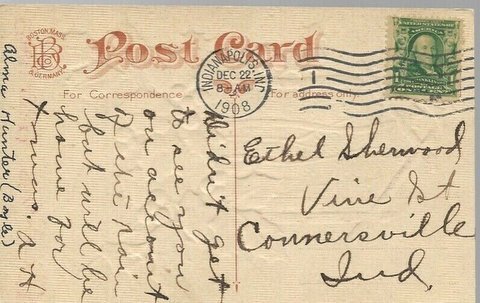 BOSTON, MASS.
B
& GERMANY.
Post Card
For Correspondence
For address only
INDIANAPOLIS, IND.
DEC 22
8 AM
1908
1
Ethel Sherwood
Vine St
Connersville
Ind.
Didn't get
to see you
on account
of the rain
but will be
home for
Xmas. A H
Alma Hunter (Boyle)